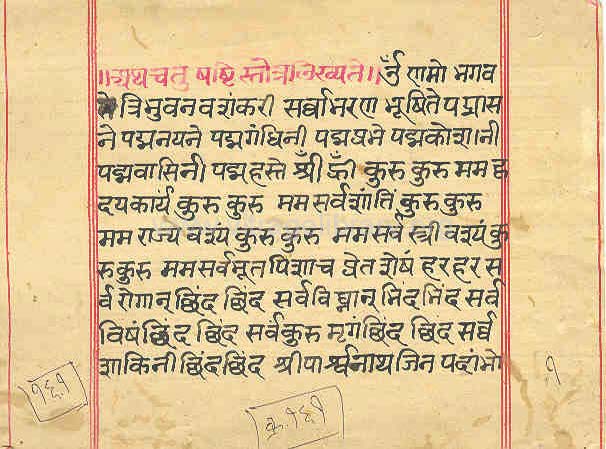 ॥अथ चतुषष्टि स्तोत्रालिख्यते॥ र्नु णामो भगव
ते त्रिभुवनवशंकरी सर्व्वाभरण भूषिते पद्मास
ने पद्मनयने पद्मगंधिनी पद्मप्रभे पद्मकोशानी
पद्मवासिनी पद्महस्ते श्रीँ ह्रीँ कुरु कुरु मम हृ
दयकार्यं कुरु कुरु मम सर्वशांतिं कुरु कुरु
मम राज्य वश्यं कुरु कुरु मम सर्व स्त्री वश्यं कु
रु कुरु मम सर्व भूत पिशाच प्रेत रोषं हर हर स
र्व रोगान् छिंद छिंद सर्व विघ्नान् भिंद भिंद सर्व
विषं छिंद छिंद सर्व कुरु मृगं छिंद छिंद सर्व्व
शाकिनी छिंद छिंद श्री पार्श्वनाथ जिन पदांभो
१
१६१
क्र. १६१